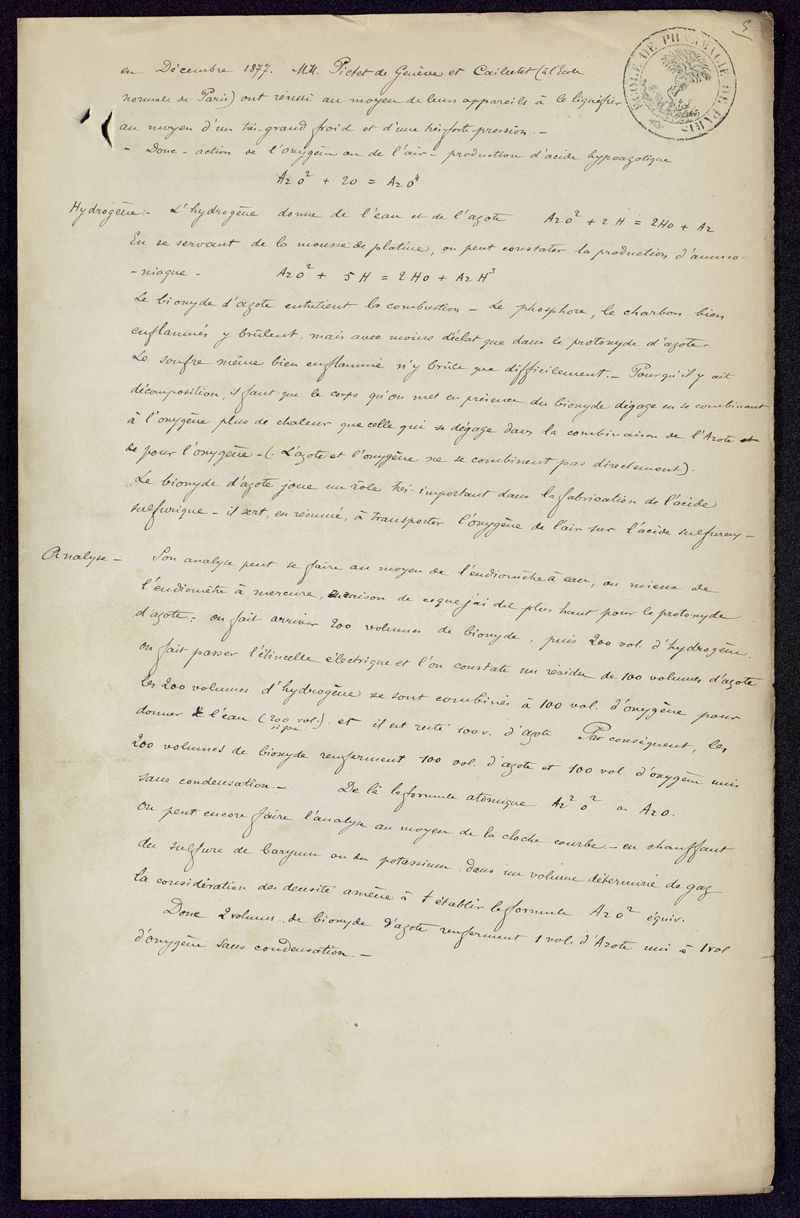 5
ÉCOLE DE PHARMACIE DE PARIS
en Décembre 1877. MM. Pictet de Genève et Cailletet (à l'Ecole
normale de Paris) ont réussi au moyen de leurs appareils à le liquéfier
au moyen d'un très-grand froid et d'une très-forte pression. —
- Donc - action de l'oxygène ou de l'air - production d'acide hypoazotique
AzO² + 2O = AzO⁴
Hydrogène. - L'hydrogène donne de l'eau et de l'azote AzO² + 2H = 2HO + Az
En se servant de la mousse de platine, on peut constater la production d'ammo-
-niaque - AzO² + 5H = 2HO + AzH³
Le bioxyde d'azote entretient la combustion - Le phosphore, le charbon bien
enflammés y brûlent, mais avec moins d'éclat que dans le protoxyde d'azote.
Le soufre même bien enflammé n'y brûle que difficilement. - Pour qu'il y ait
décomposition, il faut que le corps qu'on met en présence du bioxyde dégage en se combinant
à l'oxygène plus de chaleur que celle qui se dégage dans la combinaison de l'Azote et
de pour l'oxygène - (L'azote et l'oxygène ne se combinent pas directement).
Le bioxyde d'azote joue un rôle très-important dans la fabrication de l'acide
sulfurique - il sert, en résumé, à transporter l'oxygène de l'air sur l'acide sulfureux -
Analyse - Son analyse peut se faire au moyen de l'eudiomètre à eau, ou mieux de
l'eudiomètre à mercure, en raison de ce que j'ai dit plus haut pour le protoxyde
d'azote. - on fait arriver 200 volumes de bioxyde, puis 200 vol. d'hydrogène.
on fait passer l'étincelle électrique et l'on constate un résidu de 100 volumes d'azote
les 200 volumes d'hydrogène se sont combinés à 100 vol. d'oxygène pour
donner de l'eau (200 vol.) et il est resté 100 v. d'azote Par conséquent, les
200 volumes de bioxyde renferment 100 vol. d'azote et 100 vol d'oxygène unis
sans condensation. - De là la formule atomique Az²O² ou AzO.
On peut encore faire l'analyse au moyen de la cloche courbe - en chauffant
du sulfure de baryum ou du potassium dans un volume déterminé de gaz
la considération des densité amène à établir la formule AzO² équiv.
Donc 2 volumes de bioxyde d'azote renferment 1 vol. d'Azote uni à 1 vol
d'oxygène sans condensation. -